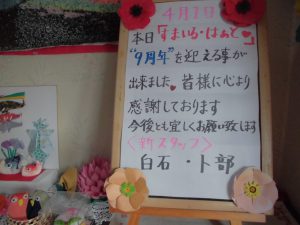 4月7日
本日「すまいる・はぁと♥」
"9周年"を迎える事が
出来ました♥皆様に心より
感謝しております
今後とも宜しくお願い致します
〈新スタッフ〉
白石・卜部